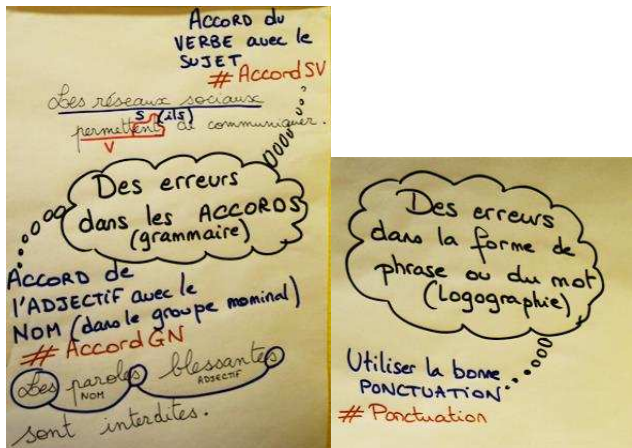 ACCORD du
VERBE avec le
SUJET
# AccordSV
Les réseaux sociaux
S (ils)
permettent de communiquer.
V
Des erreurs
dans les ACCORDS
(grammaire)
ACCORD de
l'ADJECTIF avec le
NOM (dans le groupe nominal)
# AccordGN
Les paroles blessantes
NOM ADJECTIF
sont interdites.
Des erreurs
dans la forme de
phrase ou du mot
(logographie)
Utiliser la bonne
PONCTUATION
# Ponctuation